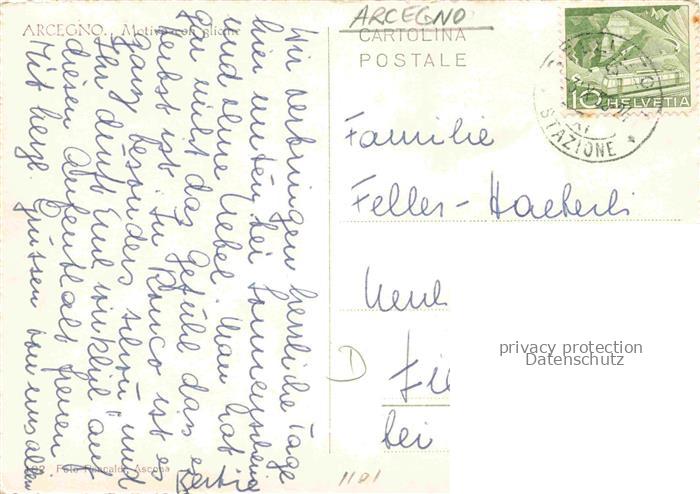 ARCEGNO. Motivo con glicine
ARCEGNO
CARTOLINA
POSTALE
10 HELVETIA
STAZIONE
Wir verbringen herrliche Tage
hier unten, bei Sonnenschein
und ohne Nebel. Man hat
gar nicht das Gefühl das es
Herbst ist. In Ronco ist es
ganz besonders schön und
Ihr dürft Euch wirklich auf
diesen Aufenthalt freuen
Mit herzl. Grüssen von uns allen
Familie
Feller-Haeberli
bei
D
Foto Ascona
1101
privacy protection
Datenschutz